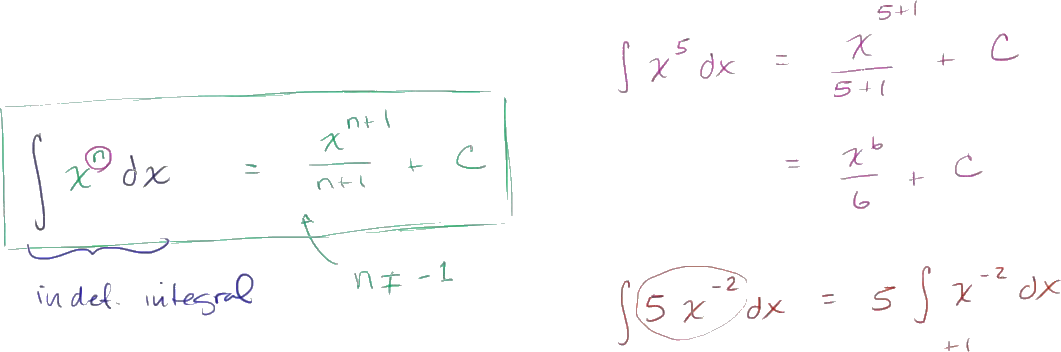 ∫ xⁿ dx = xⁿ⁺¹/(n+1) + C
n ≠ -1
indef. integral
∫ x⁵ dx = x⁵⁺¹/(5+1) + C
= x⁶/6 + C
∫ 5 x⁻² dx = 5 ∫ x⁻² dx
+1